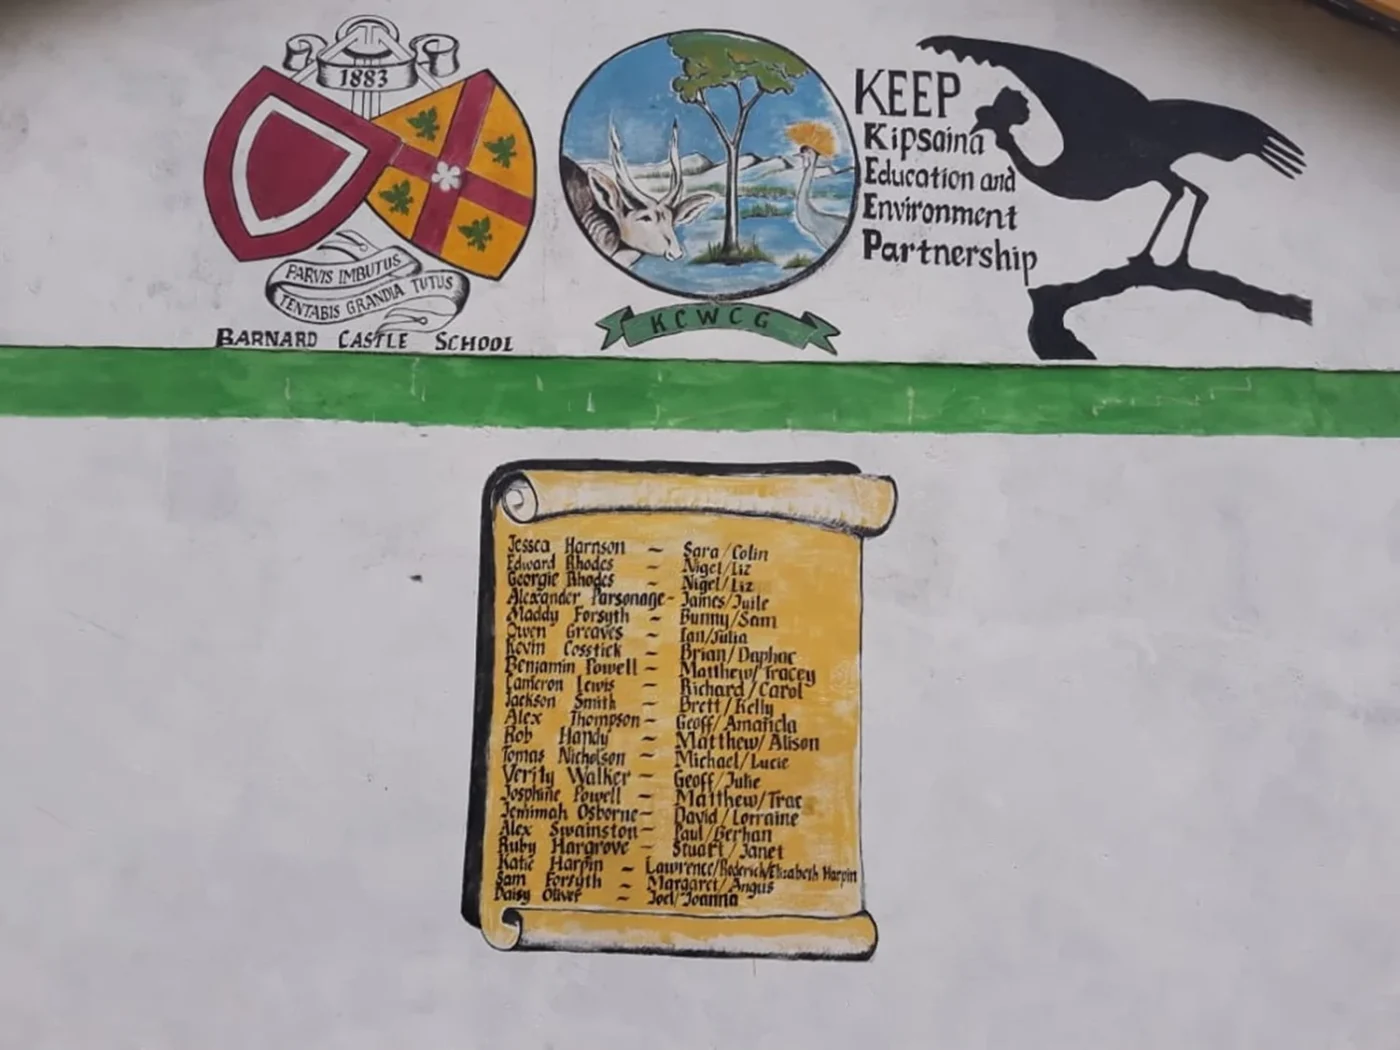 1883
PARVIS IMBUTUS
TENTABIS GRANDIA TUTUS
BARNARD CASTLE SCHOOL
KCWCG
KEEP
Kipsaina
Education and
Environment
Partnership
Jessca Harnson ~ Sara/Colin
Edward Rhodes ~ Nigel/Liz
Georgie Rhodes ~ Nigel/Liz
Alexander Parsonage - James/Juile
Maddy Forsyth ~ Bunny/Sam
Owen Greaves ~ Ian/Julia
Kevin Cosstick ~ Brian/Daphne
Benjamin Powell ~ Matthew/Tracey
Cameron Lewis ~ Richard/Carol
Jackson Smith ~ Brett/Kelly
Alex Thompson ~ Geoff/Amanda
Rob Handy ~ Matthew/Alison
Tomas Nicholson ~ Michael/Lucie
Verity Walker ~ Geoff/Julie
Josphine Powell ~ Matthew/Trac
Jemimah Osborne ~ David/Lorraine
Alex Swainston ~ Paul/Berhan
Ruby Hargrove ~ Stuart/Janet
Katie Harpin ~ Lawrence/Roderick/Elizabeth Harpin
Sam Forsyth ~ Margaret/Angus
Daisy Oliver ~ Joel/Joanna